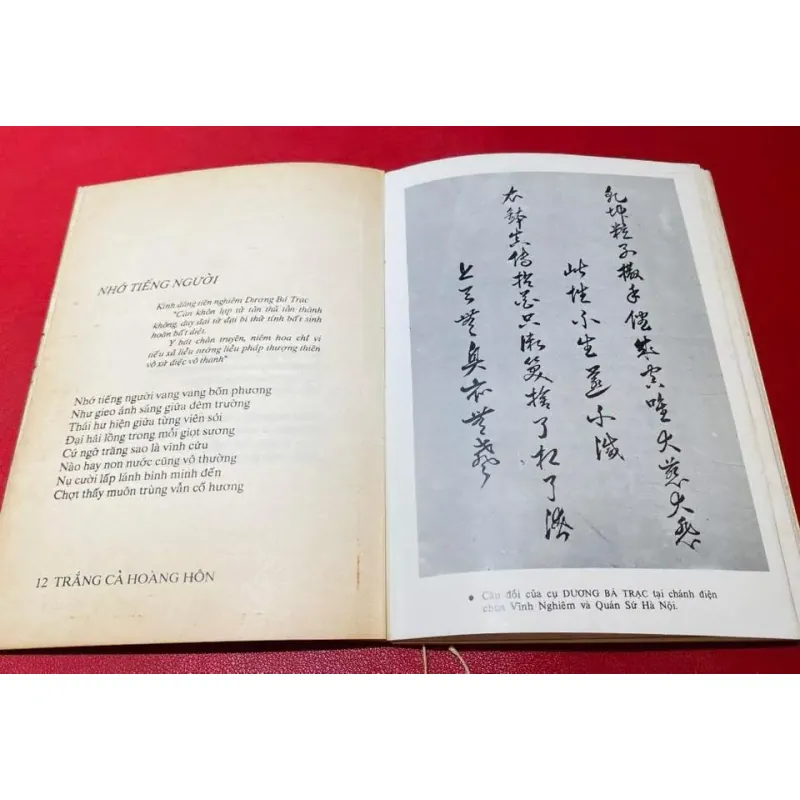 NHỚ TIẾNG NGƯỜI
Kính dâng tiên nghiêm Dương Bá Trạc
"Càn khôn lạp tử tản thủ tản thành
không, duy đại từ đại bi thử tính bất sinh
hoàn bất diệt.
Y bát chân truyện, niêm hoa chỉ vi
tiếu xả liễu tướng liễu pháp thượng thiên
vô xú diệc vô thanh"
Nhớ tiếng người vang vang bốn phương
Như gieo ánh sáng giữa đêm trường
Thái hư hiện giữa từng viên sỏi
Đại hải lồng trong mỗi giọt sương
Cứ ngỡ trăng sao là vĩnh cửu
Nào hay non nước cũng vô thường
Nụ cười lấp lánh bình minh đến
Chợt thấy muôn trùng vẫn cố hương
12 TRẮNG CẢ HOÀNG HÔN
乾坤粒子撒手空唯大慈大悲
此性不生還不滅
衣鉢真傳拈花只微笑捨了相了法
上天無臭亦無聲
• Câu đối của cụ DƯƠNG BÁ TRẠC tại chánh điện
chùa Vĩnh Nghiêm và Quán Sứ Hà Nội.